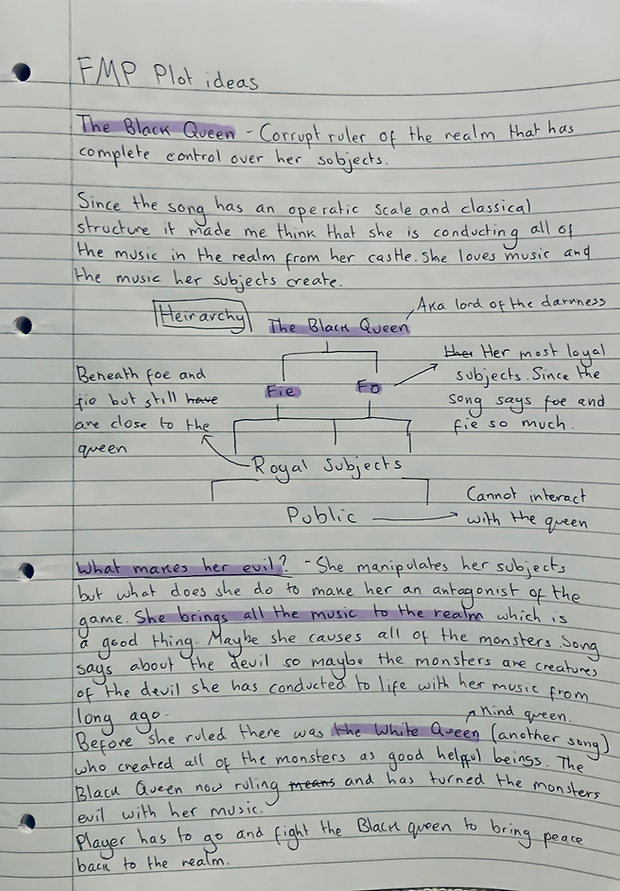 FMP Plot ideas
The Black Queen - Corrupt ruler of the realm that has
complete control over her sobjects.
Since the song has an operatic scale and classical
structure it made me think that she is conducting all of
the music in the realm from her castle. She loves music and
the music her subjects create.
Heirarchy
Aka lord of the darkness
The Black Queen
Beneath foe and
fie but still have
are close to the
queen
Fie
Fo
Her Her most loyal
subjects. Since the
song says foe and
fie so much.
Royal Subjects
Public
Cannot interact
with the queen
What makes her evil? - She manipulates her subjects
but what does she do to make her an antagonist of the
game. She brings all the music to the realm which is
a good thing. Maybe she causes all of the monsters. Song
says about the devil so maybe the monsters are creatures
of the devil she has conducted to life with her music from
long ago.
Kind queen.
Before she ruled there was the White Queen (another song)
who created all of the monsters as good helpful beings. The
Black Queen now ruling means and has turned the monsters
evil with her music.
Player has to go and fight the Black queen to bring peace
back to the realm.